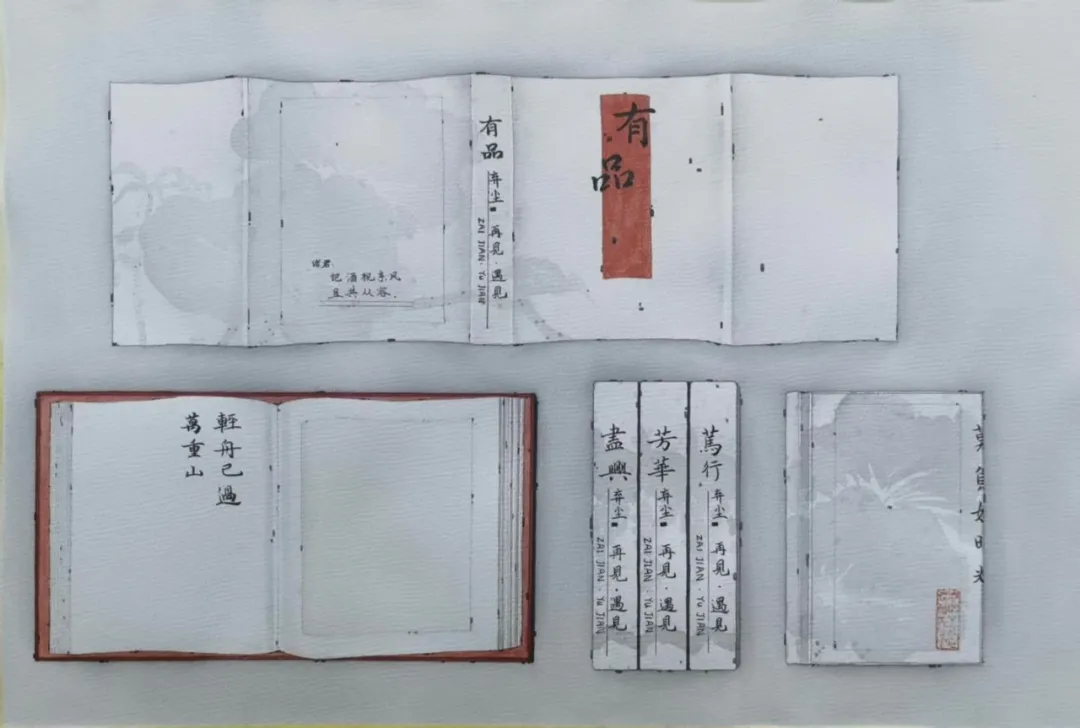 诸君:
把酒祝东风
且共从容.
有品
弃尘
再見·遇見
ZAI JIAN·YU JIAN
有品
輕舟已過
萬重山
盡興
弃尘
再見·遇見
ZAI JIAN·YU JIAN
芳華
弃尘
再見·遇見
ZAI JIAN·YU JIAN
篤行
弃尘
再見·遇見
ZAI JIAN·YU JIAN